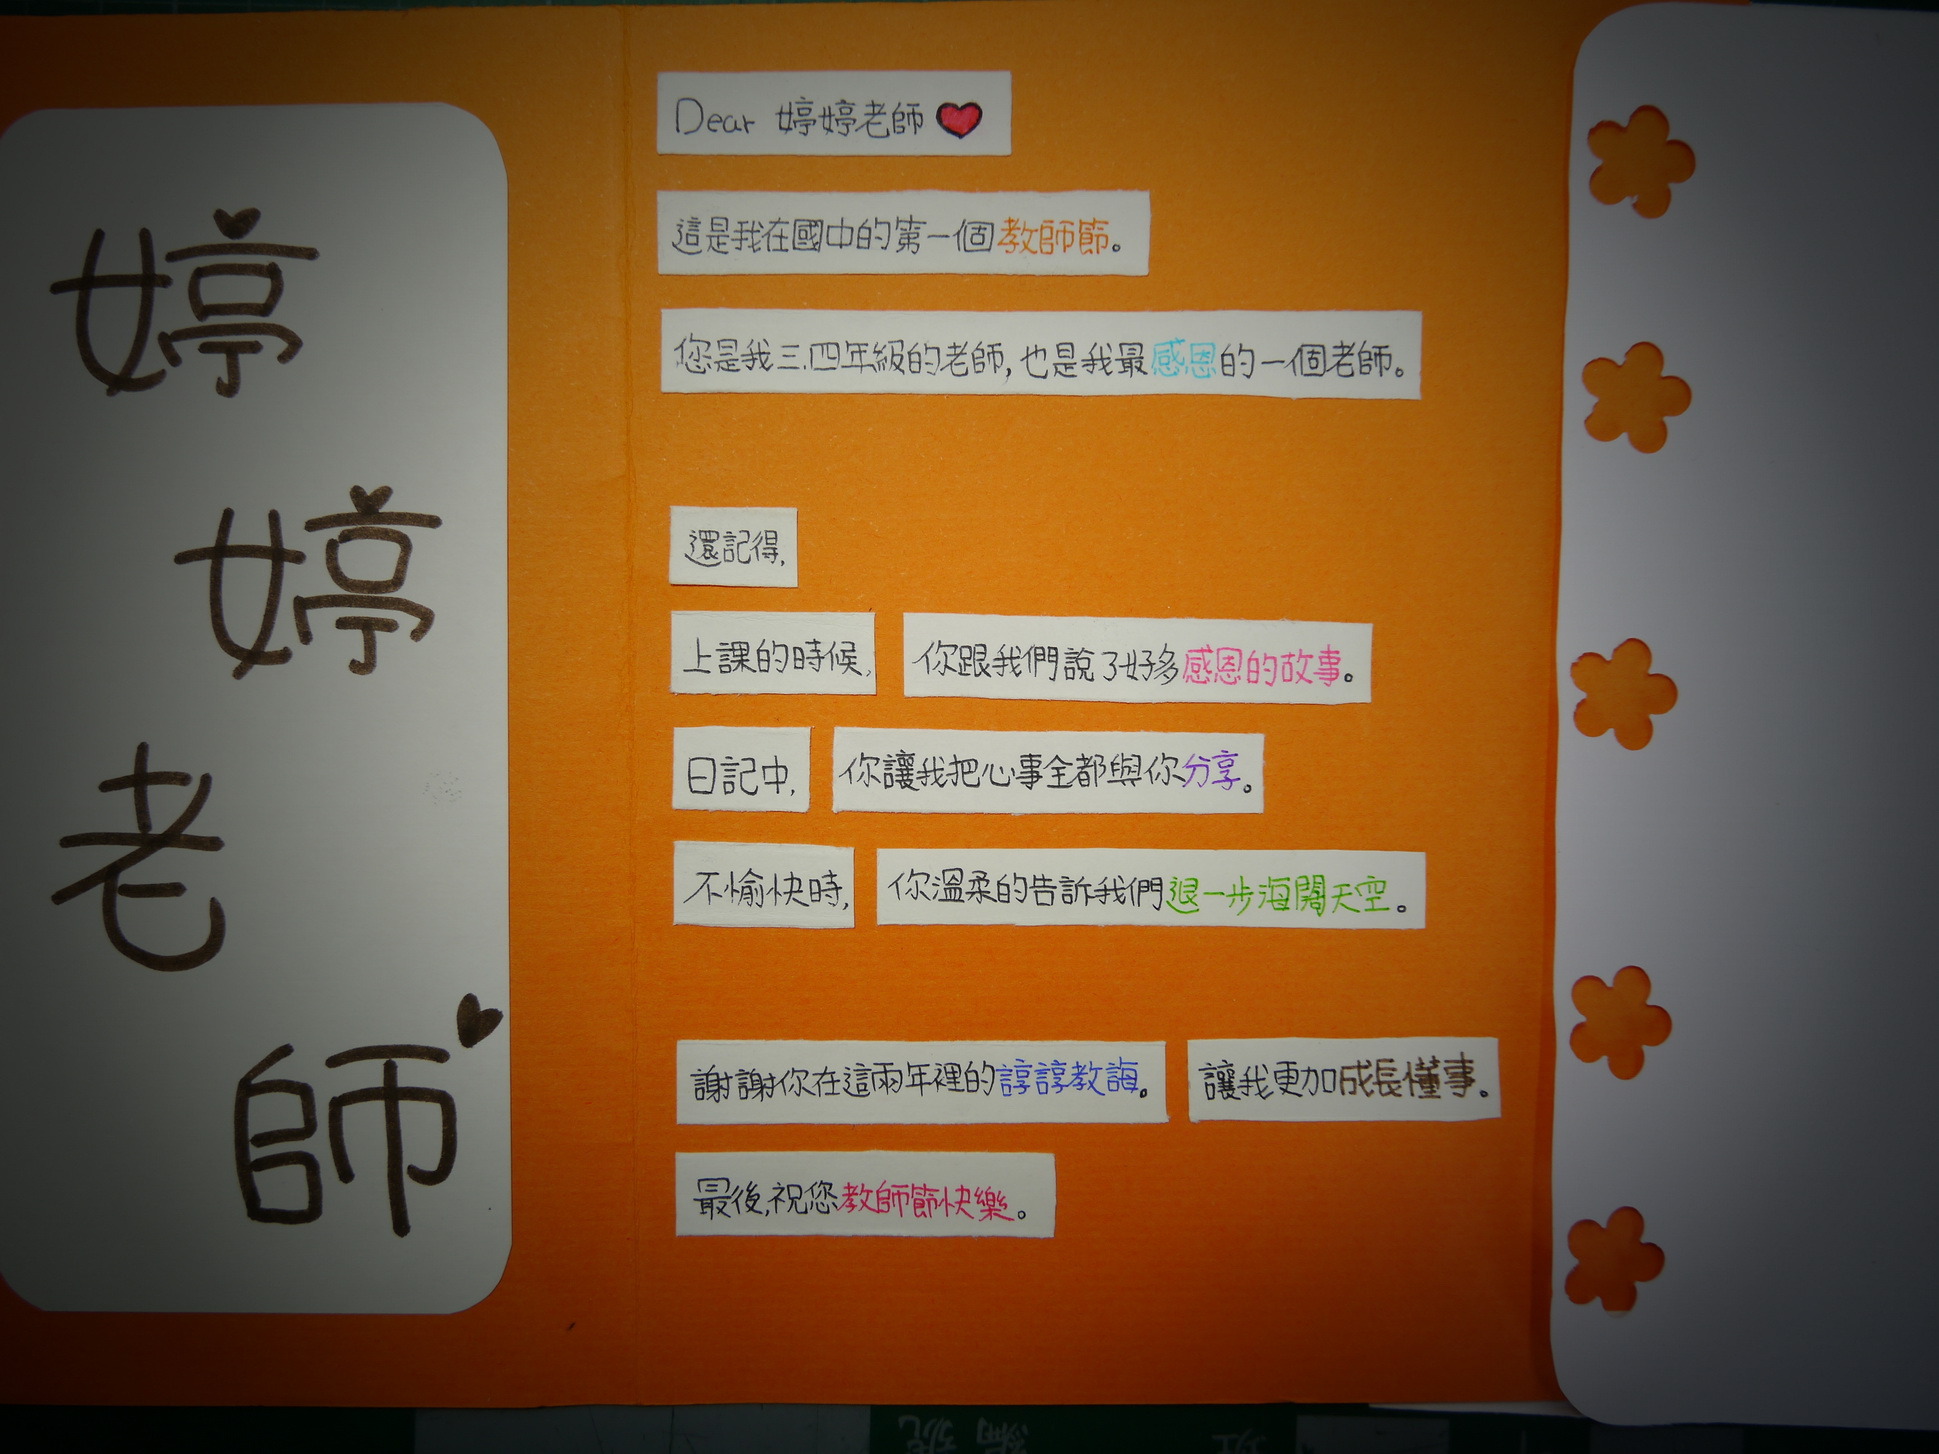 婷婷老師
Dear 婷婷老師
這是我在國中的第一個教師節。
您是我三.四年級的老師,也是我最感恩的一個老師。
還記得,
上課的時候, 你跟我們說了好多感恩的故事。
日記中, 你讓我把心事全都與你分享。
不愉快時, 你溫柔的告訴我們退一步海闊天空。
謝謝你在這兩年裡的諄諄教誨。 讓我更加成長懂事。
最後,祝您教師節快樂。
班
編號